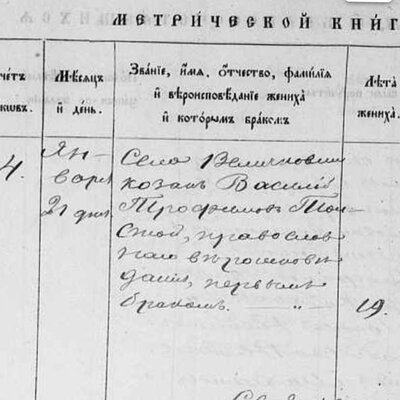 МЕТРИЧЕСКОЙ КНИГ
чётъ
Мѣсяцъ
и́ де́нь.
Зва́нїе, и́мя, ѻ҆́тчество, фами́лїя
и́ вѣроисповѣ́данїе жениха̀
и́ кото́рымъ бра́комъ
Лѣ́та
жениха̀.
4.
Ян-
варя
21 дня
Села Величковки
козакъ Василій
Трофимовъ Тол-
стой, православ
наго вѣроисповѣ
данія, первымъ
бракомъ.
19.